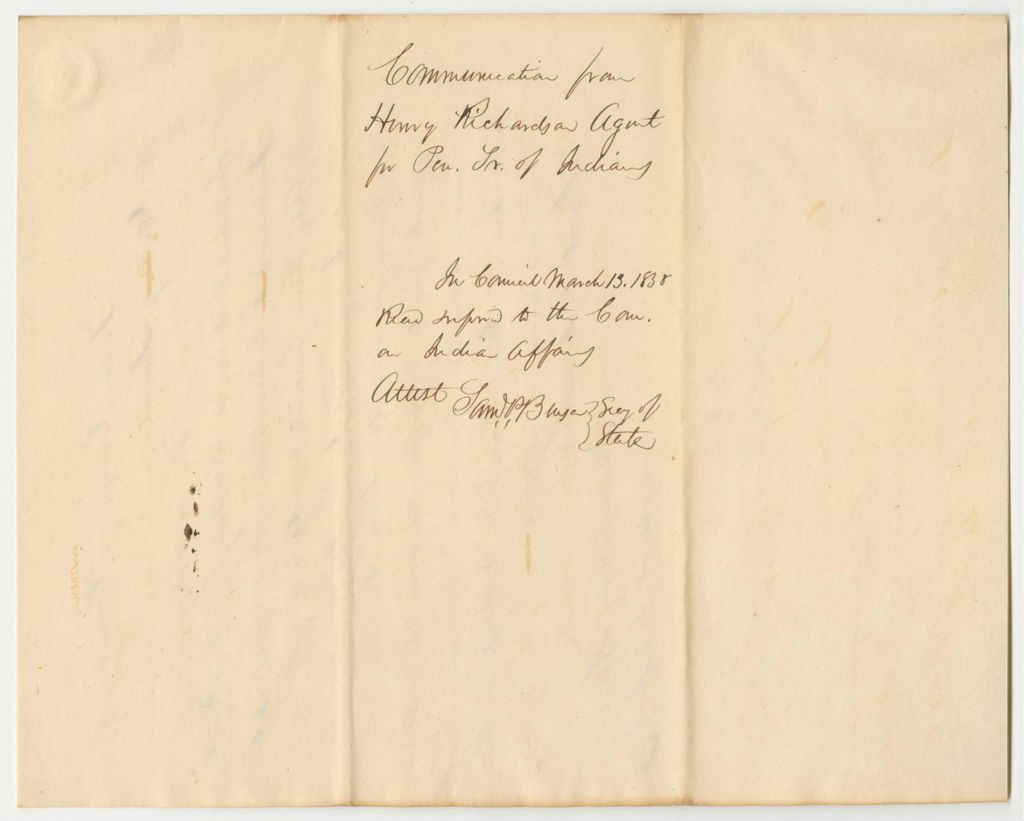 Communication from
Henry Richardson Agent
for Pen. Tr. of Indians
In Council March 13. 1838
Read referred to the Com.
on Indian Affairs
Attest Saml. P. Benson } Secy of
} State